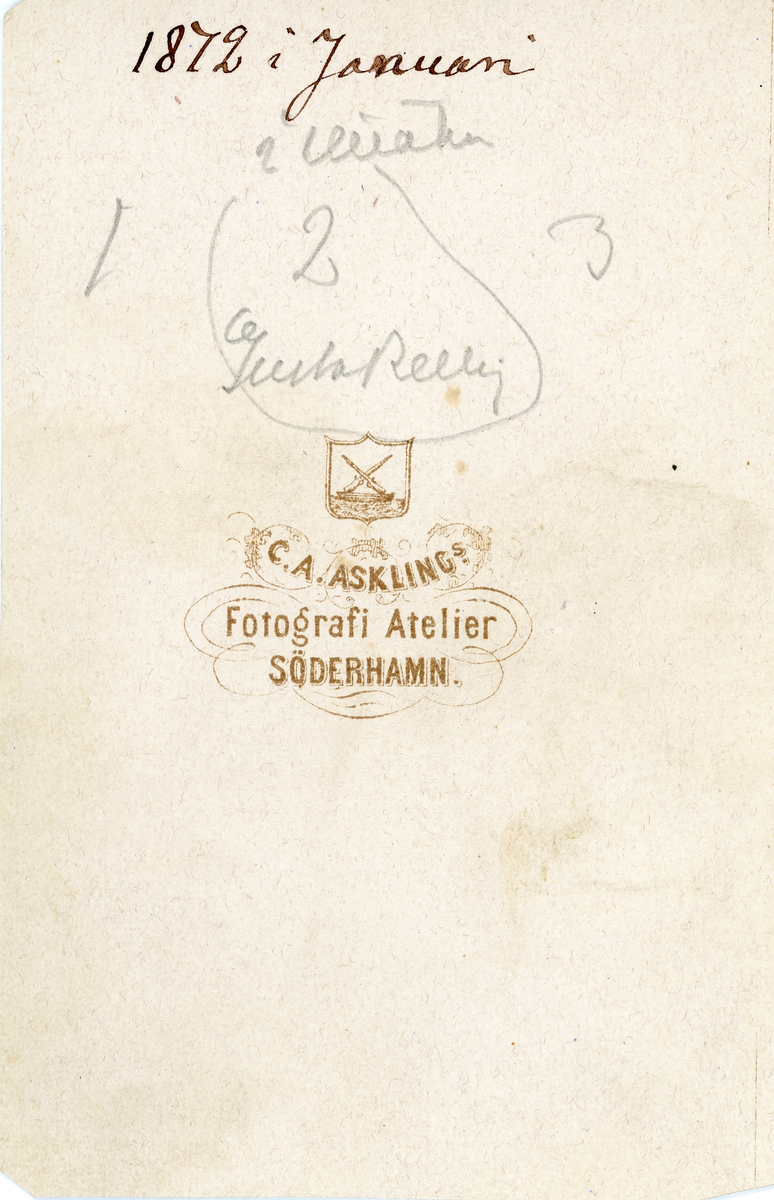 1872 i Januari
i
1 2 3
Gusta
C. A. ASKLINGS
Fotografi Atelier
SÖDERHAMN.